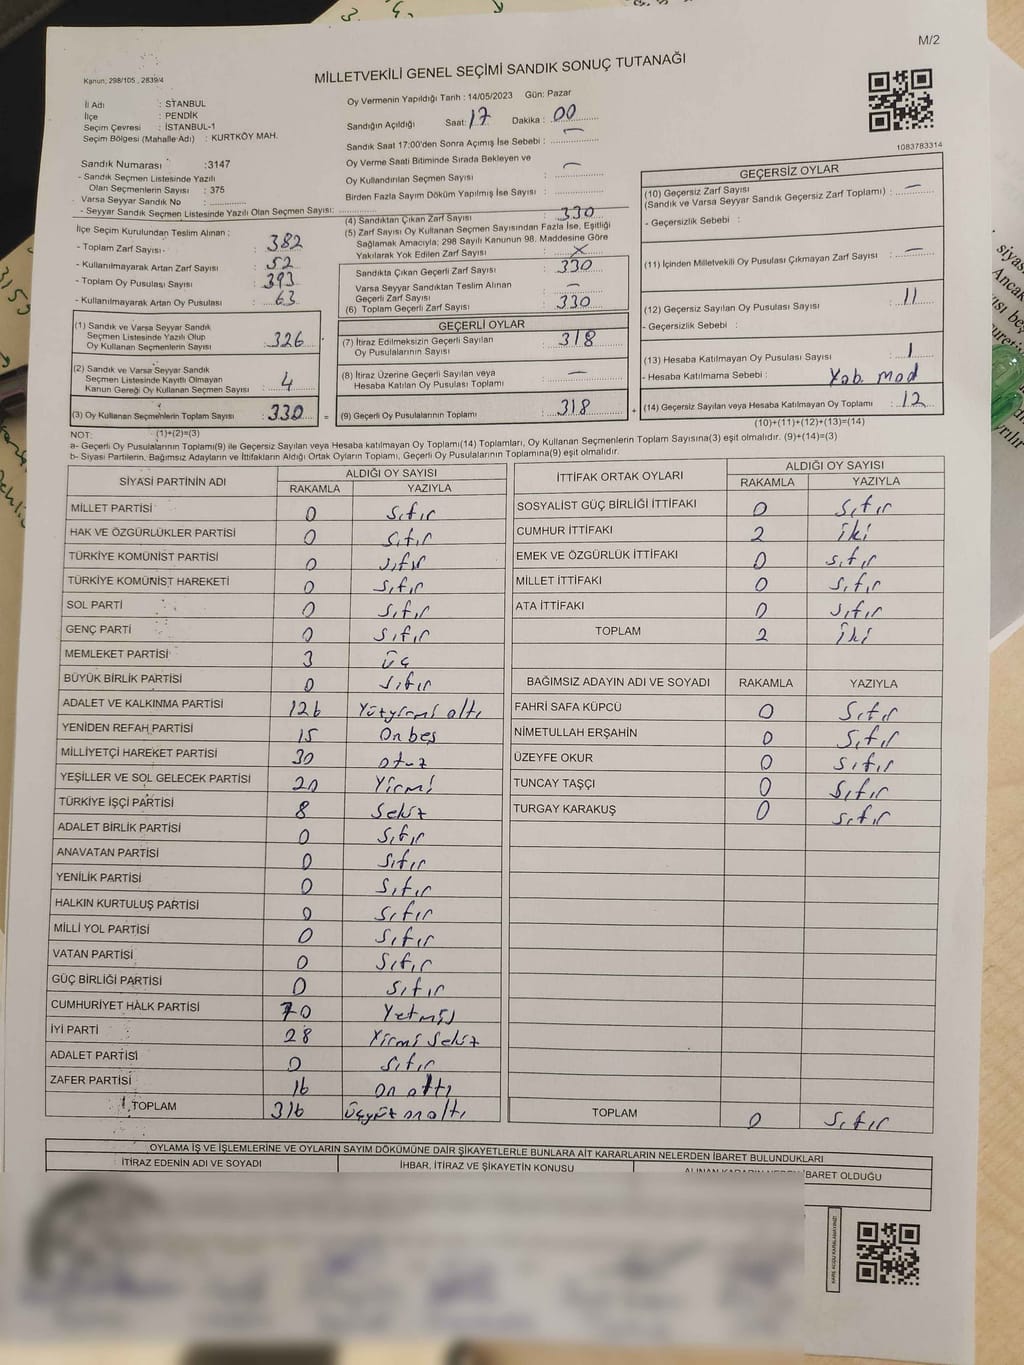 M/2
Kanun; 298/105 , 2839/4
MİLLETVEKİLİ GENEL SEÇİMİ SANDIK SONUÇ TUTANAĞI
İl Adı : STANBUL
İlçe : PENDİK
Seçim Çevresi : İSTANBUL-1
Seçim Bölgesi (Mahalle Adı) : KURTKÖY MAH.
Sandık Numarası :3147
- Sandık Seçmen Listesinde Yazılı
Olan Seçmenlerin Sayısı : 375
Varsa Seyyar Sandık No :
- Seyyar Sandık Seçmen Listesinde Yazılı Olan Seçmen Sayısı:
İlçe Seçim Kurulundan Teslim Alınan :
- Toplam Zarf Sayısı : 382
- Kullanılmayarak Artan Zarf Sayısı : 52
- Toplam Oy Pusulası Sayısı : 393
- Kullanılmayarak Artan Oy Pusulası : 63
(1) Sandık ve Varsa Seyyar Sandık
Seçmen Listesinde Yazılı Olup
Oy Kullanan Seçmenlerin Sayısı : 326
(2) Sandık ve Varsa Seyyar Sandık
Seçmen Listesinde Kayıtlı Olmayan
Kanun Gereği Oy Kullanan Seçmen Sayısı : 4
(3) Oy Kullanan Seçmenlerin Toplam Sayısı : 330 =
(1)+(2)=(3)
Oy Vermenin Yapıldığı Tarih : 14/05/2023 Gün: Pazar
Sandığın Açıldığı Saat: 17 Dakika : 00
Sandık Saat 17:00'den Sonra Açımış İse Sebebi : —
Oy Verme Saati Bitiminde Sırada Bekleyen ve
Oy Kullandırılan Seçmen Sayısı : —
Birden Fazla Sayım Döküm Yapılmış İse Sayısı :
(4) Sandıktan Çıkan Zarf Sayısı : 330
(5) Zarf Sayısı Oy Kullanan Seçmen Sayısından Fazla İse, Eşitliği
Sağlamak Amacıyla; 298 Sayılı Kanunun 98. Maddesine Göre
Yakılarak Yok Edilen Zarf Sayısı : X
Sandıkta Çıkan Geçerli Zarf Sayısı : 330
Varsa Seyyar Sandıktan Teslim Alınan
Geçerli Zarf Sayısı : —
(6) Toplam Geçerli Zarf Sayısı : 330
GEÇERLİ OYLAR
(7) İtiraz Edilmeksizin Geçerli Sayılan
Oy Pusulalarının Sayısı : 318
(8) İtiraz Üzerine Geçerli Sayılan veya
Hesaba Katılan Oy Pusulası Toplamı : —
(9) Geçerli Oy Pusulalarının Toplamı : 318 +
1083783314
GEÇERSİZ OYLAR
(10) Geçersiz Zarf Sayısı
(Sandık ve Varsa Seyyar Sandık Geçersiz Zarf Toplamı) : —
- Geçersizlik Sebebi :
(11) İçinden Milletvekili Oy Pusulası Çıkmayan Zarf Sayısı : —
(12) Geçersiz Sayılan Oy Pusulası Sayısı : 11
- Geçersizlik Sebebi :
(13) Hesaba Katılmayan Oy Pusulası Sayısı : 1
- Hesaba Katılmama Sebebi :
(14) Geçersiz Sayılan veya Hesaba Katılmayan Oy Toplamı : 12
(10)+(11)+(12)+(13)=(14)
NOT:
a- Geçerli Oy Pusulalarının Toplamı(9) ile Geçersiz Sayılan veya Hesaba katılmayan Oy Toplamı(14) Toplamları, Oy Kullanan Seçmenlerin Toplam Sayısına(3) eşit olmalıdır. (9)+(14)=(3)
b- Siyasi Partilerin, Bağımsız Adayların ve İttifakların Aldığı Ortak Oyların Toplamı, Geçerli Oy Pusulalarının Toplamına(9) eşit olmalıdır.
SİYASİ PARTİNİN ADI ALDIĞI OY SAYISI
RAKAMLA YAZIYLA
MİLLET PARTİSİ 0 Sıfır
HAK VE ÖZGÜRLÜKLER PARTİSİ 0 Sıfır
TÜRKİYE KOMÜNİST PARTİSİ 0 sıfır
TÜRKİYE KOMÜNİST HAREKETİ 0 Sıfır
SOL PARTİ 0 Sıfır
GENÇ PARTİ 0 Sıfır
MEMLEKET PARTİSİ 3 üç
BÜYÜK BİRLİK PARTİSİ 0 sıfır
ADALET VE KALKINMA PARTİSİ 126 Yüzyirmi altı
YENİDEN REFAH PARTİSİ 15 Onbeş
MİLLİYETÇİ HAREKET PARTİSİ 30 otuz
YEŞİLLER VE SOL GELECEK PARTİSİ 20 Yirmi
TÜRKİYE İŞÇİ PARTİSİ 8 Sekiz
ADALET BİRLİK PARTİSİ 0 Sıfır
ANAVATAN PARTİSİ 0 Sıfır
YENİLİK PARTİSİ 0 Sıfır
HALKIN KURTULUŞ PARTİSİ 0 Sıfır
MİLLİ YOL PARTİSİ 0 Sıfır
VATAN PARTİSİ 0 Sıfır
GÜÇ BİRLİĞİ PARTİSİ 0 Sıfır
CUMHURİYET HALK PARTİSİ 70 Yetmiş
İYİ PARTİ 28 Yirmi Sekiz
ADALET PARTİSİ 0 Sıfır
ZAFER PARTİSİ 16 On altı
TOPLAM 316 üçyüz on altı
İTTİFAK ORTAK OYLARI ALDIĞI OY SAYISI
RAKAMLA YAZIYLA
SOSYALİST GÜÇ BİRLİĞİ İTTİFAKI 0 Sıfır
CUMHUR İTTİFAKI 2 iki
EMEK VE ÖZGÜRLÜK İTTİFAKI 0 sıfır
MİLLET İTTİFAKI 0 Sıfır
ATA İTTİFAKI 0 Sıfır
TOPLAM 2 iki
BAĞIMSIZ ADAYIN ADI VE SOYADI RAKAMLA YAZIYLA
FAHRİ SAFA KÜPCÜ 0 Sıfır
NİMETULLAH ERŞAHİN 0 Sıfır
ÜZEYFE OKUR 0 Sıfır
TUNCAY TAŞÇI 0 Sıfır
TURGAY KARAKUŞ 0 Sıfır
TOPLAM 0 Sıfır
OYLAMA İŞ VE İŞLEMLERİNE VE OYLARIN SAYIM DÖKÜMÜNE DAİR ŞİKAYETLERLE BUNLARA AİT KARARLARIN NELERDEN İBARET BULUNDUKLARI
İTİRAZ EDENİN ADI VE SOYADI İHBAR, İTİRAZ VE ŞİKAYETİN KONUSU ALINAN KARARIN NEDEN İBARET OLDUĞU